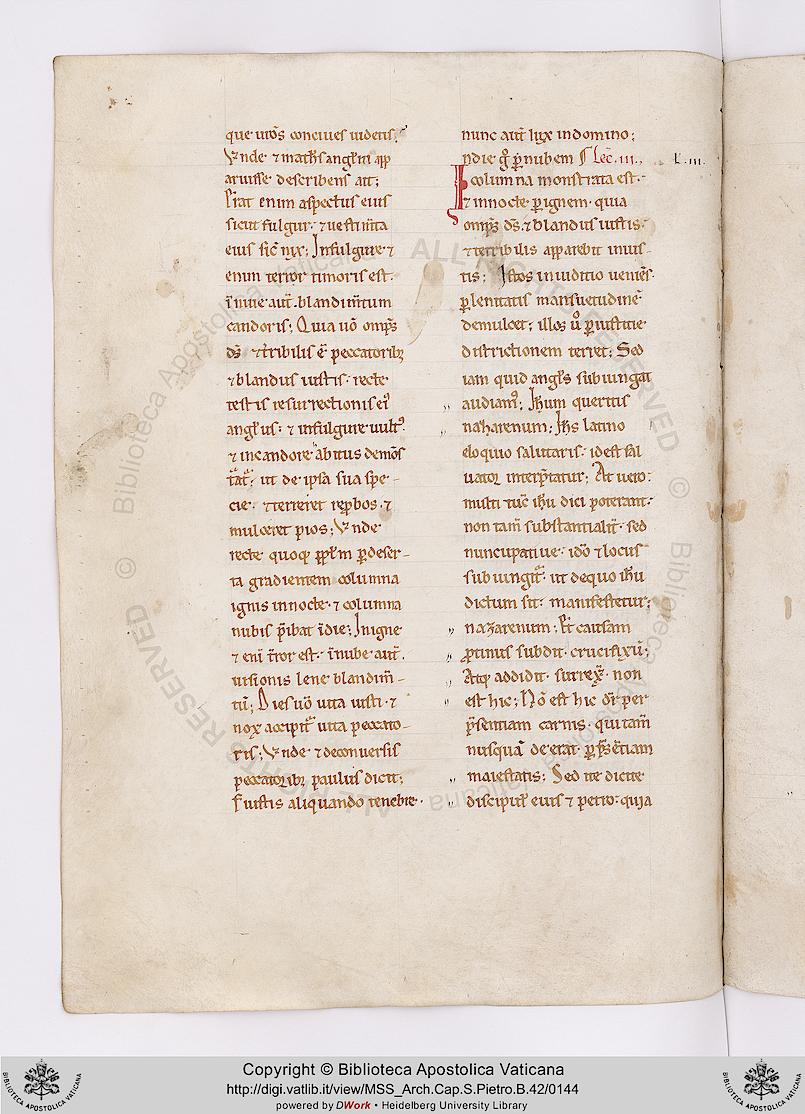 que u͛ros conciues uidetis.
Vnde ⁊ math͛s angl̄m app
aruisse describens ait;
Erat enim aspectus eius
sicut fulgur. ⁊ uestim̄ta
eius sic̄ nix; In fulgure ⁊
enim terror timoris est.
in niue aut̄. blandim̄tum
candoris; Quia uō omp̄s
ds̄ ⁊ t̄ribilis ē peccatorib;
⁊ blandus iustis. recte
testis resurrectionis ei᷒
angl̄us. ⁊ in fulgure uult᷒.
⁊ in candore habitus demōs
trat᷑. ut de ipsa sua spe-
cie. ⁊ terreret rep̄bos. ⁊
mulceret pios; Vnde
recte quoq; ppl̄m p̱ deser-
ta gradientem columna
ignis in nocte. ⁊ columna
nubis p̄ibat ī die; In igne
⁊ eni t̄ror est. ī nube aut̄.
uisionis lene blandim̄-
tū; Dies uō uita iusti. ⁊
nox accipit᷑ uita peccato-
ris; Vnde ⁊ de conuersis
peccatorib; paulus dicit;
Fuistis aliquando tenebre.
nunc aut̄ lux in domino;
n die g̊ p̱ nubem Lec̄. iii.
I columna monstrata est.
⁊ in nocte p̱ ignem. quia
omp̄s ds̄. ⁊ blandus iustis.
⁊ terribilis apparebit inius-
tis; Istos in iuditio ueniēs.
p̱ lenitatis mansuetudinē
demulcet; illos ů p̱ iustitie
districtionem terret; Sed
iam quid angl̄s subiungat
audiam᷒; Ih̄um queritis
naz̄arenum; Ih̄s latino
eloquio salutaris. id est sal
uator interp̄tatur; At uero.
multi tūc ih̄u dici poterant.
non tam̄ substantialit̄. sed
nuncupatiue. idō ⁊ locus
subiungit᷑. ut de quo ih̄u
dictum sit. manifestetur;
nazarenum; Et causam
ꝓtinus subdit. crucifixū;
Atq; addidit. surrex̄. non
est hic; Nō est hic dr̄ per
p̄sentiam carnis. qui tam̄
nusquā deerat. p̱ p̄sētiam
maiestatis; Sed ite dicite
discipul̄ eius ⁊ petro. quia
L. iii.
Copyright © Biblioteca Apostolica Vaticana
http://digi.vatlib.it/view/MSS_Arch.Cap.S.Pietro.B.42/0144
powered by DWork • Heidelberg University Library
BIBLIOTECA APOSTOLICA VATICANA
BIBLIOTECA APOSTOLICA VATICANA
ALL RIGHTS RESERVED © Biblioteca Apostolica Vaticana
ALL RIGHTS RESERVED © Biblioteca Apostolica Vaticana